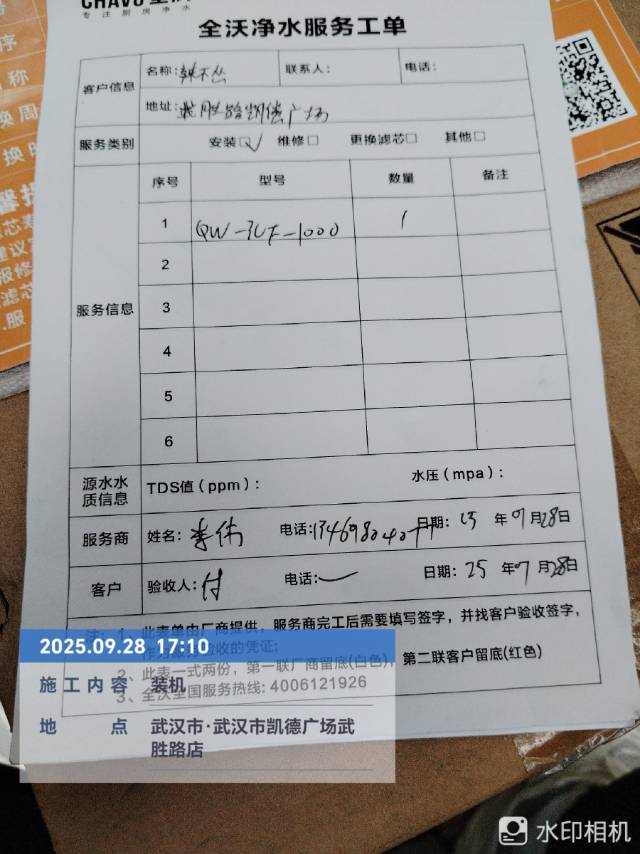 专注厨房净水
全沃净水服务工单
客户信息
名称:
联系人:
电话:
地址: 武胜路凯德广场
服务类别
安装☑ 维修□ 更换滤芯□ 其他□
服务信息
序号 型号 数量 备注
1 QW-3CF-1000 1
2
3
4
5
6
源水水质信息
TDS值(ppm):
水压(mpa):
服务商
姓名: 李伟
电话:
日期: 25 年 9 月 28 日
客户
验收人: 付
电话:
日期: 25 年 9 月 28 日
注: 1、此表单由厂商提供,服务商完工后需要填写签字,并找客户验收签字,
的凭证;
2、此表一式两份,第一联厂商留底(白色),第二联客户留底(红色)
3、全沃全国服务热线: 4006121926
2025.09.28 17:10
施工内容 装机
地点 武汉市·武汉市凯德广场武
胜路店
水印相机